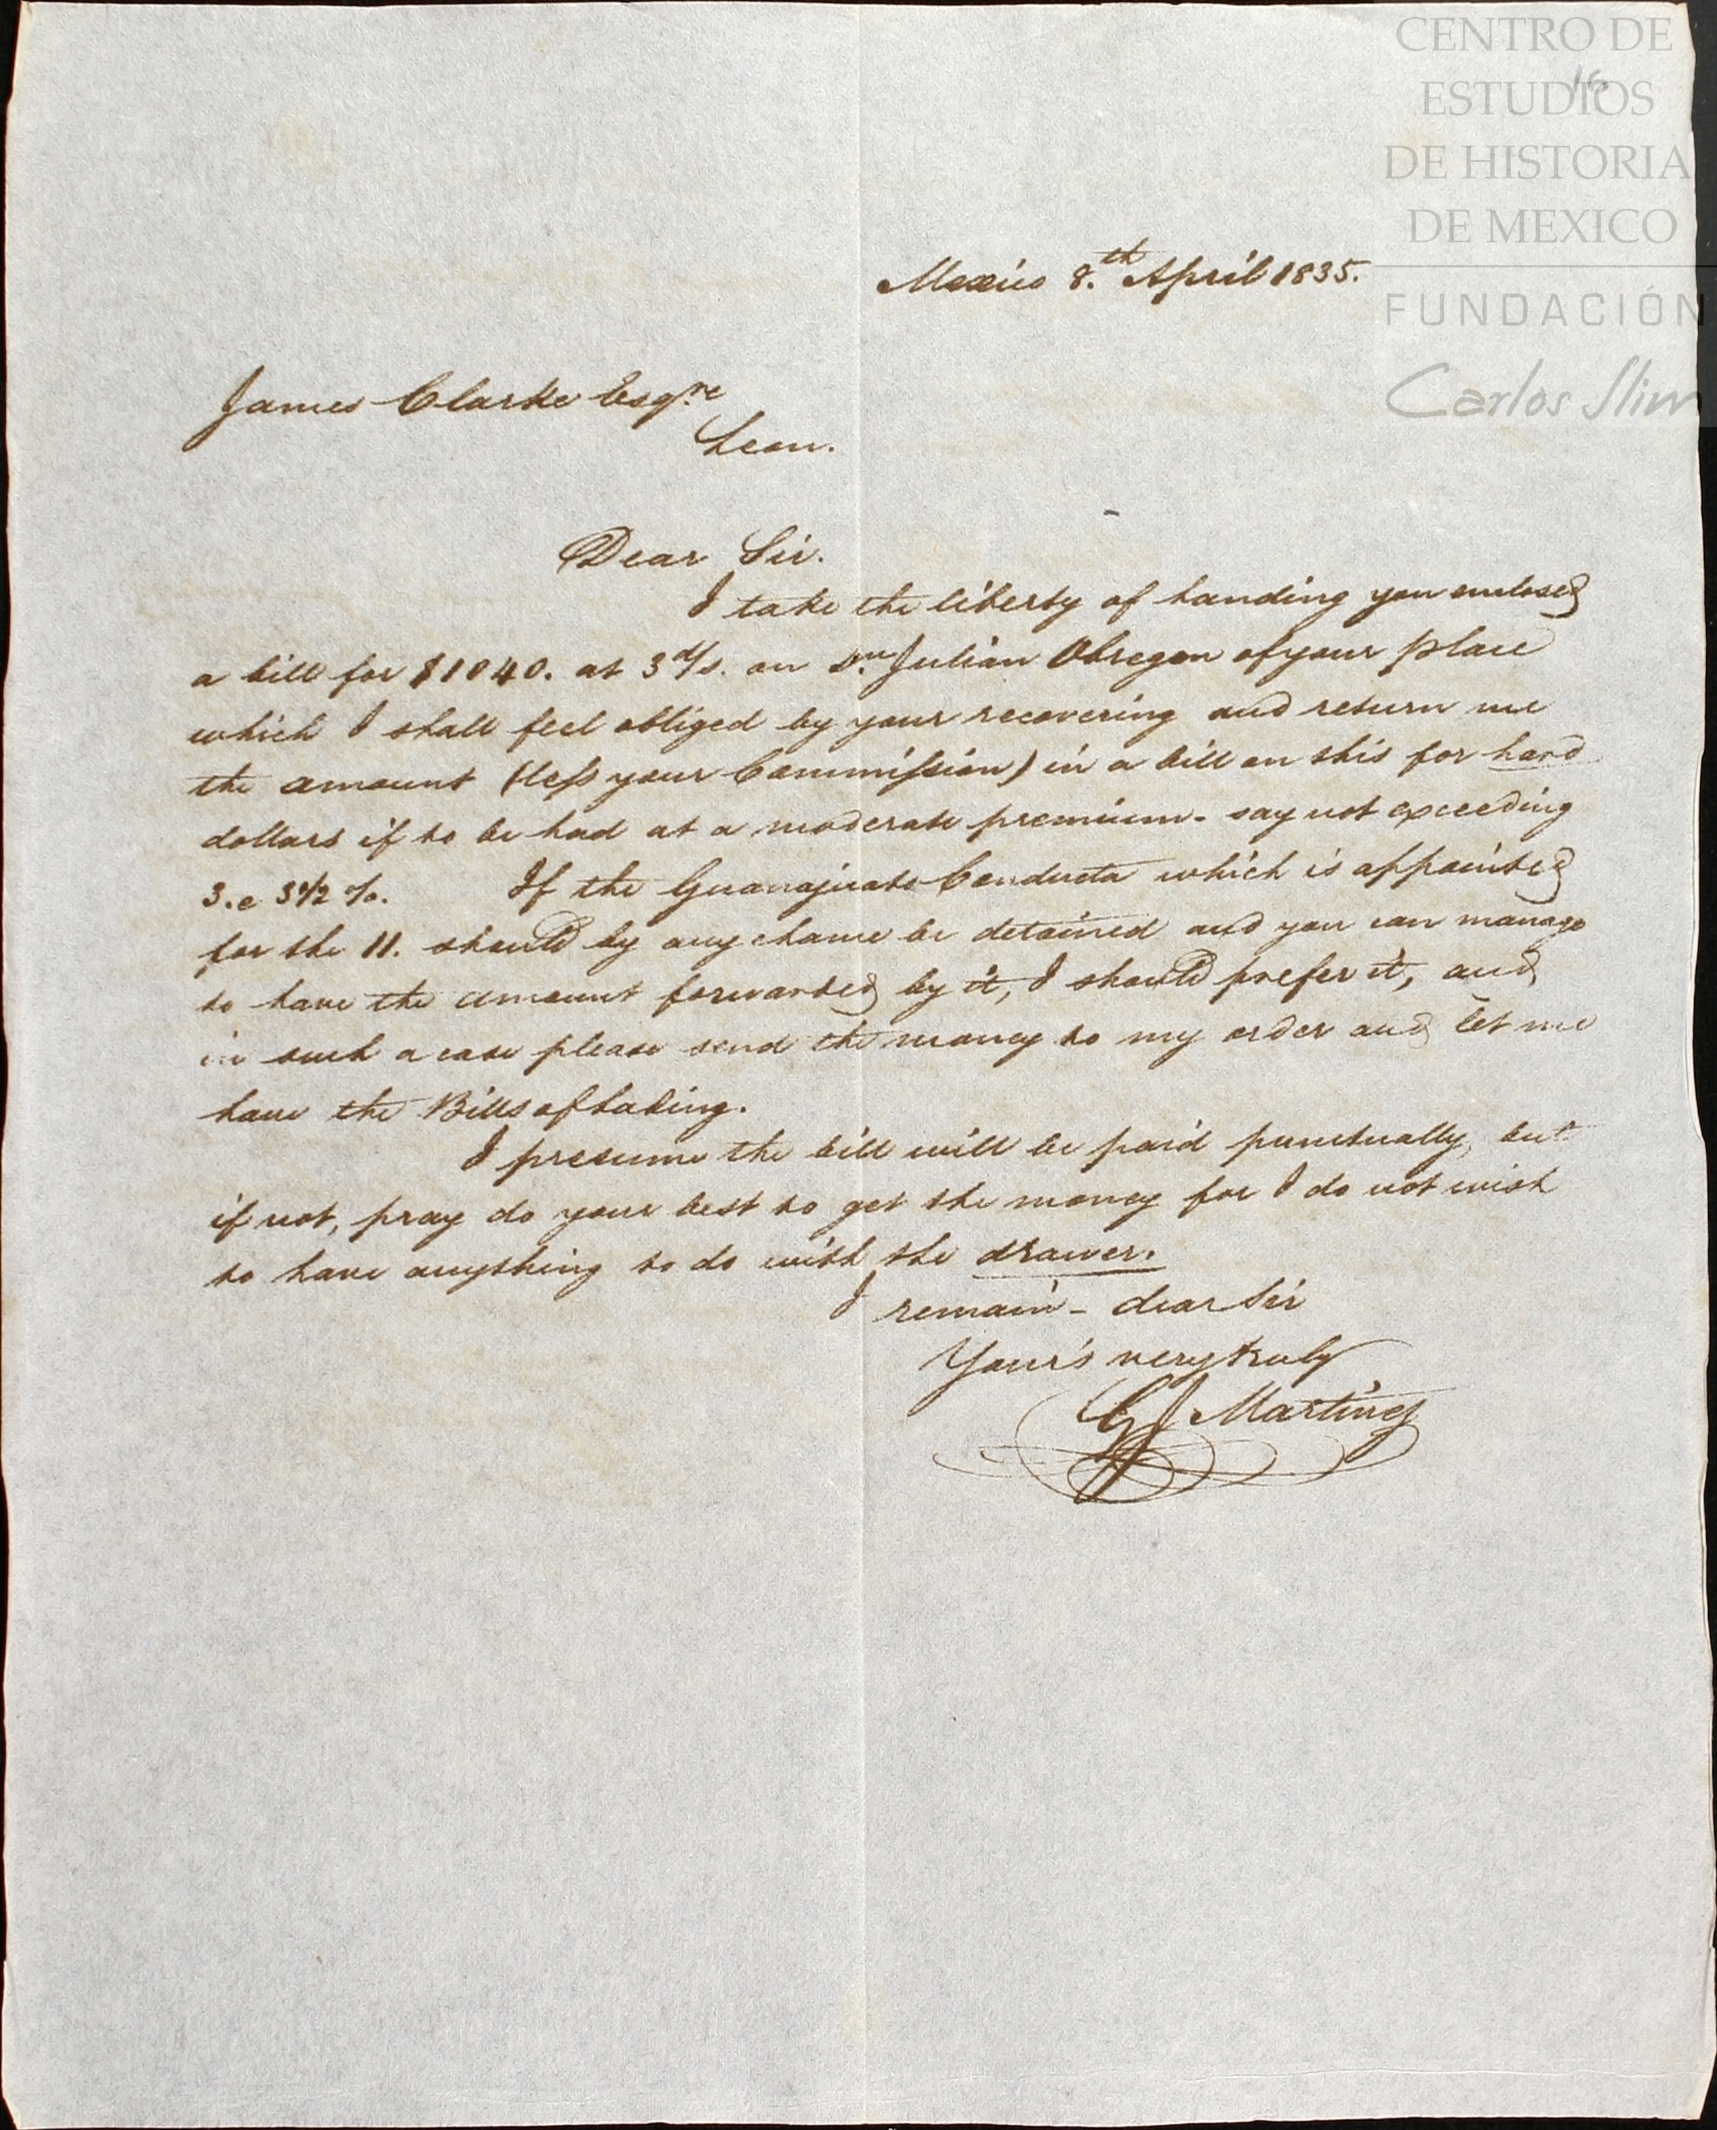 CENTRO DE
ESTUDIOS
DE HISTORIA
DE MEXICO
FUNDACIÓN
Carlos Slim
16
Mexico 8.th April 1835.
James Clarke Esqre
Leon.
Dear Sir.
I take the liberty of handing you enclosed
a bill for $1040. at 3 d/s. on Dn. Julian Obregon of your place
which I shall feel obliged by your recovering and return me
the amount (less your Commission) in a bill on this for hard
dollars if to be had at a moderate premium - say not exceeding
3. a 3 1/2 %. If the Guanajuato Conducta which is appointed
for the 11. should by any chance be detained and you can manage
to have the amount forwarded by it, I should prefer it, and
in such a case please send the money to my order and let me
have the Bills of Lading.
I presume the bill will be paid punctually, but
if not, pray do your best to get the money for I do not wish
to have anything to do with the drawer.
I remain - dear Sir
Your's very truly
Martinez